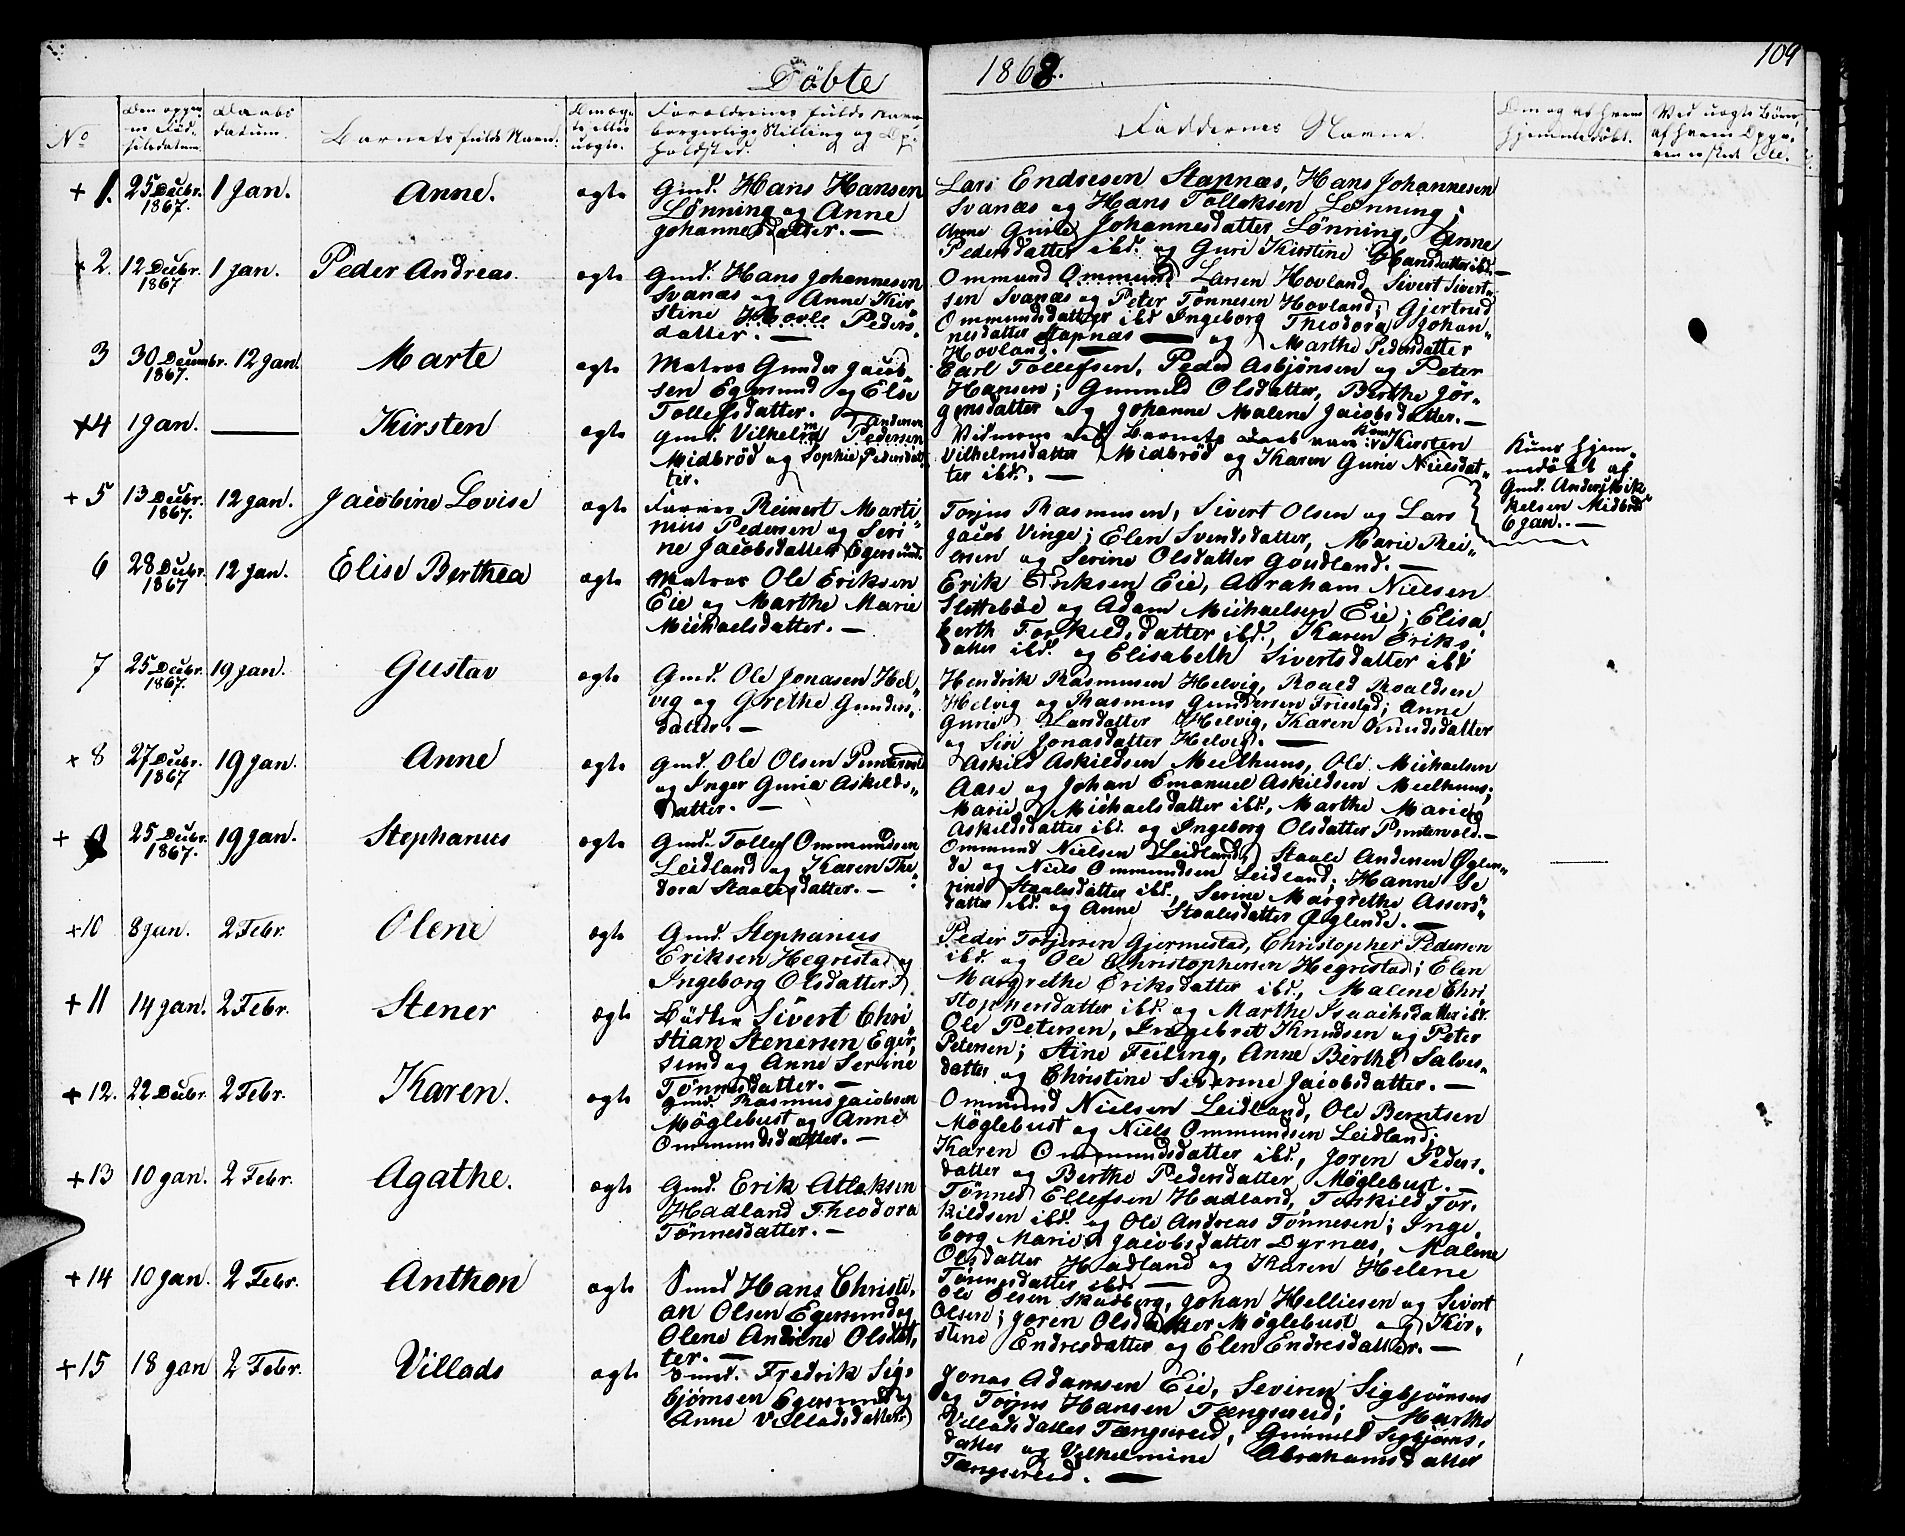 Döbte 1868. 109
No
Den opgivne Fødselsdatum.
Daabsdatum.
Barnets fulde Navn.
Om ægte eller uægte.
Forældrenes fulde Navn, borgerlige Stilling og Opholdsted.
Faddernes Navne.
Om og af hvem hjemmedøbt.
Ved uægte Børn,
+ 1. 25 Decbr. 1867. 1 Jan. Anne. ægte
Gmd. Hans Hansen
Lønning og Anne
Johannesdatter. —
Lars Endresen Stapnæs, Hans Johannesen
Svanæs og Hans Tollaksen Lønning;
Anne Gurie Johannesdatter Lønning, Anne
Pedersdatter ibd. og Guri Kirstine Hansdatter ibd. —
+ 2. 12 Decbr. 1867 1 Jan. Peder Andreas. ægte
Gmd. Hans Johannesen
Svanæs og Anne Kir„
stine Hovl. Peders„
datter. —
Ommund Ommund Larsen Hovland, Sivert Sivert„
sen Svanæs og Peter Tønnesen Hovland; Gjertrud
Ommundsdatter ibd. Ingeborg Theodora Johan„
nesdatter Stapnæs — og Marthe Pedersdatter
Hovland. —
3 30 Decembr. 1867. 12 Jan. Marte ægte
Matros Gunder Jacob
sen Egersund og Else
Tollefsdatter.
Carl Tollefsen, Peder Asbjønsen og Peter
Hansen; Gunneld Olsdatter, Berthe Jør„
gensdatter og Johanne Malene Jacobsdatter. —
+4 1 Jan. — Kirsten ægte
Gmd. Vilhelm Andersen Pedersen
Midbrød og Sophie Pedersdat
ter.
Vidnerne ved Barnets Daab vare: Kirsten
Vilhelmsdatter Midbrød og Karen Gurie Nielsdat„
ter ibd. —
Kuns hjem„
medöbt af
Gmd. Anders Mik„
kelsen Midbrød
6 Jan. —
+ 5 13 Decbr. 1867. 12 Jan. Jacobine Lovise ægte
Farver Reinert Marti„
nius Pedersen og Seri„
ne Jacobsdatter Egersund.
Torjus Rasmussen, Sivert Olsen og Lars
Jacob Vinge; Elen Svendsdatter, Marie Rei„
ersen og Serine Olsdatter Goudland. —
6 28 Decbr. 1867 12 Jan. Elise Berthea ægte
Matros Ole Eriksen
Eie og Marthe Marie
Michaelsdatter. —
Erik Eriksen Eie, Abraham Nielsen
Slettebøe og Adam Michaelsen Eie; Elisa
berth Torkildsdatter ibd., Karen Eriks„
datter ibd. og Elisabeth Sivertsdatter ibd
7 25 Decbr. 1867. 19 Jan. Gustav ægte
Gmd. Ole Jonasen Hel„
vig og Grethe Gunders„
datter. —
Hendrik Rasmusen Helvig, Roald Roaldsen
Helvig og Rasmus Gundersen Friestad; Anne
Gurie Larsdatter Helvig, Karen Knudsdatter
og Siri Jonasdatter Helvig. —
+ 8 27 Decbr. 1867 19 Jan. Anne ægte
Gmd. Ole Olsen Puntervold
og Inger Guria Askelds„
datter. —
Askild Askildsen Meelhuus, Ole Michaelsen
Aase og Johan Emanuel Askildsen Meelhuus;
Marie Michaelsdatter ibd., Marthe Marie
Askildsdatter ibd. og Ingeborg Olsdatter Puntervold. —
+ 9 25 Decbr. 1867. 19 Jan. Stephanus ægte
Gmd. Tollef Ommundsen
Leidland og Karen The„
dora Staalesdatter. —
Ommund Nielsen Leidland, Staale Andersen Øglen„
de og Niels Ommundsen Leidland; Hanne Se
rine Staalesdatter ibd., Serine Margrethe Assers„
datter ibd. og Anne Staalesdatter Øglende. —
+10 8 Jan. 2 Febr. Olene ægte
Gmd. Stephanus
Eriksen Hegrestad og
Ingeborg Olsdatter
Peder Torjersen Gjermestad, Christopher Pedersen
ibd. og Ole Christophersen Hegrestad; Elen
Margrethe Eriksdatter ibd., Malene Chri„
stophersdatter ibd. og Marthe Isaachsdatter ibd.
+ 11 14 Jan. 2 Febr. Stener ægte
Bødker Sivert Chri„
stian Stenersen Eger„
sund og Anne Serine
Tønnesdatter. —
Ole Petersen, Ingebret Knudsen og Peter
Petersen; Stine Feiling, Anne Berthe Salves„
datter og Christine Severine Jacobsdatter. —
+ 12. 22 Decbr. 2 Febr. Karen. ægte
Gmd. Rasmus Jacobsen
Møglebust og Anne
Ommundsdatter. —
Ommund Nielsen Leidland, Ole Berntsen
Møglebust og Niels Ommundsen Leidland;
Karen Ommundsdatter ibd., Joren Peders„
datter og Berthe Pedersdatter Møglebust. —
+ 13 10 Jan. 2 Febr. Agathe. ægte
Gmd. Erik Atlaksen
Hadland Theodora
Tönnesdatter. —
Tönnes Ellefsen Hadland, Torkild Tor„
kildsen ibd. og Ole Andreas Tønnesen; Inge„
borg Marie Jacobsdatter Dyrnæs, Malene
Olsdatter Hadland og Karen Helene
Tönnesdatter ibd. —
+ 14 10 Jan. 2 Febr. Anthon ægte
Smed Hans Christi„
an Olsen Egersund og
Olene Andrine Olsdat„
ter. —
Ole Olsen Skadberg, Johan Helliesen og Sivert
Olsen; Joren Olsdatter Møglebust og Kir„
stine Endresdatter og Elen Endresdatter. —
+ 15 18 Jan 2 Febr. Villads ægte
Smed. Fredrik Sig„
bjørnsen Egersund og
Anne Villadsdatter
Jonas Adamsen Eie, Seviren Sigbjørnsen
og Torjus Hansen Tængsereid; Marthe
Villadsdatter Tængsereid, Gunneld Sigbjørns„
datter og Vilhelmine Abrahamsdatter
Tængsereid. —